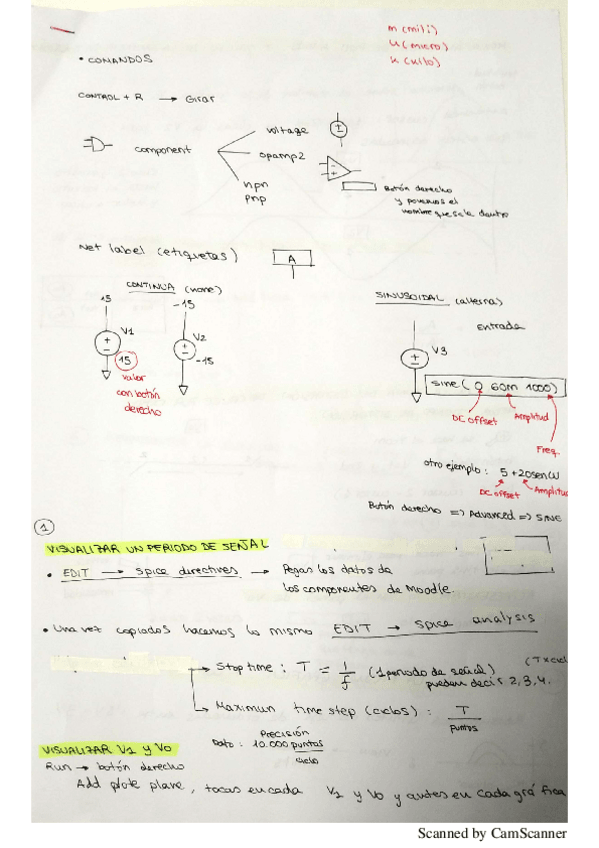 m (mili)
u (micro)
k (kilo)
• COMANDOS
CONTROL + R → Girar
component
voltage
opamp2
npn
pnp
Botón derecho
y ponemos el
nombre que sale dentro
Net label (etiquetas)
A
CONTINUA (none)
15
-15
V1
V2
15
-15
valor
con botón
derecho
SINUSOIDAL (alterna)
Entrada
V3
sine (0 60m 1000)
DC offset
Amplitud
Freq.
otro ejemplo: 5 + 20senW
DC offset
Amplitud
Botón derecho => Advanced => SINE
1
VISUALIZAR UN PERIODO DE SEÑAL
• EDIT → spice directives → Pegas los datos de
los componentes de Moodle.
• Una vez copiados hacemos lo mismo EDIT → spice analysis
Stop time: T = 1/f (1 periodo de señal)
pueden decir 2, 3, 4.
Maximun time step (ciclos): T/puntos
Precisión
Dato: 10.000 puntos/ciclo
VISUALIZAR V1 y Vo
Run → botón derecho
Add plote plane, tocas en cada V1 y Vo y antes en cada gráfica
Scanned by CamScanner